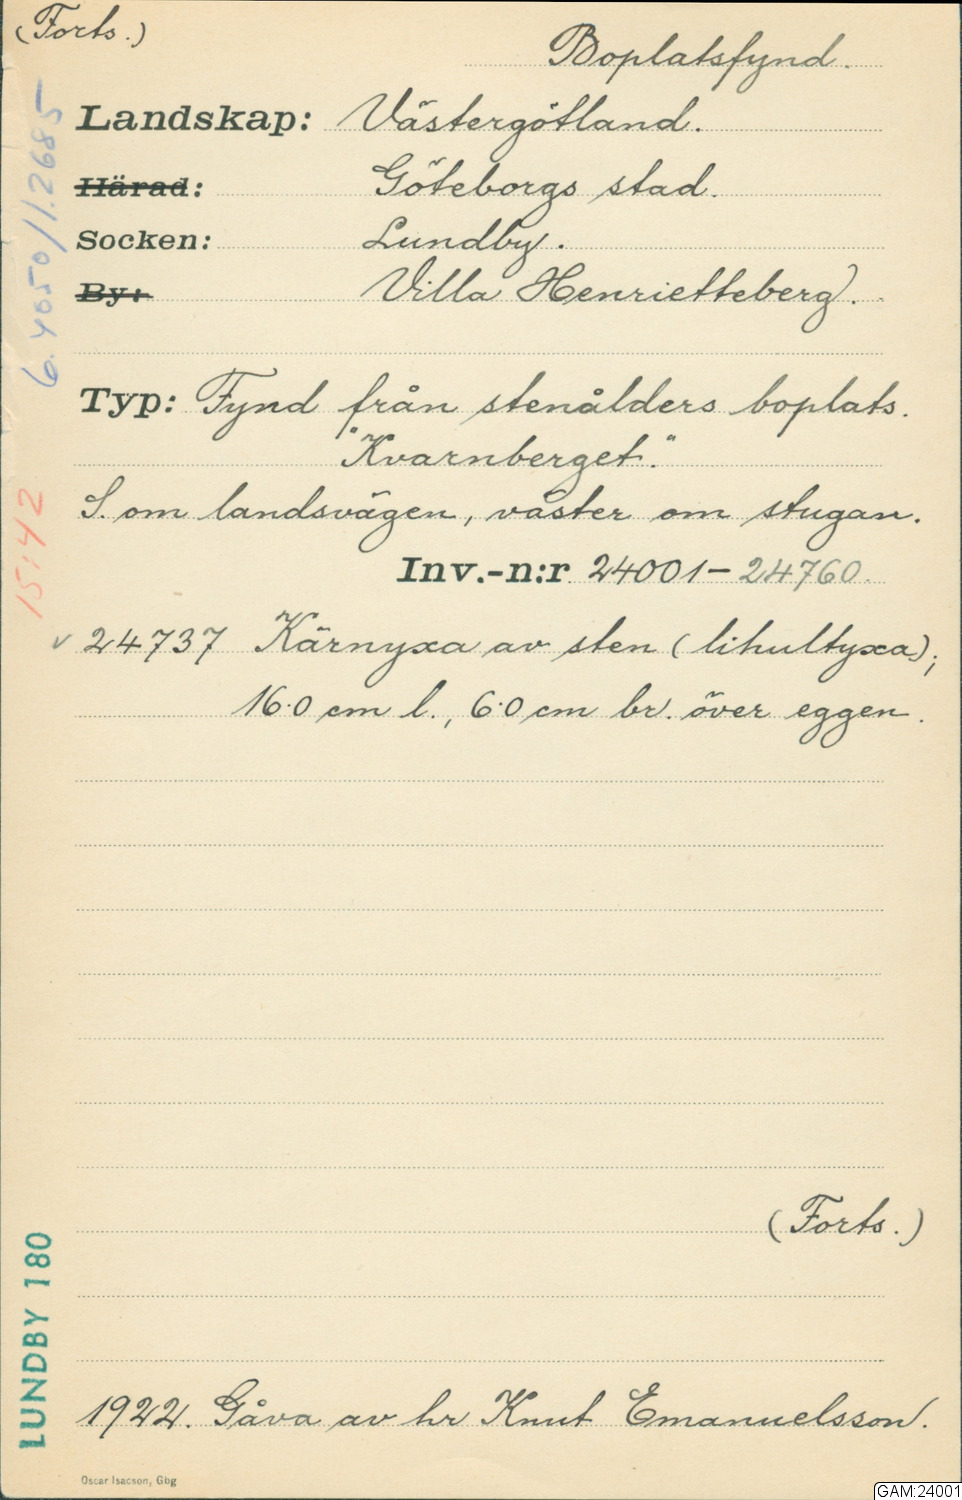 (Forts.)
Boplatsfynd.
Landskap: Västergötland.
Härad: Göteborgs stad.
Socken: Lundby.
By: Villa Henrietteberg.
Typ: Fynd från stenålders boplats.
"Kvarnberget."
S. om landsvägen, väster om stugan.
Inv.-n:r 24001-24760.
v 24737 Kärnyxa av sten (lihultyxa);
16.0 cm l., 6.0 cm br. över eggen.
(Forts.)
1922. Gåva av hr Knut Emanuelsson.
Oscar Isacson, Gbg
6.4050/1.2685
15:42
LUNDBY 180
GAM:24001